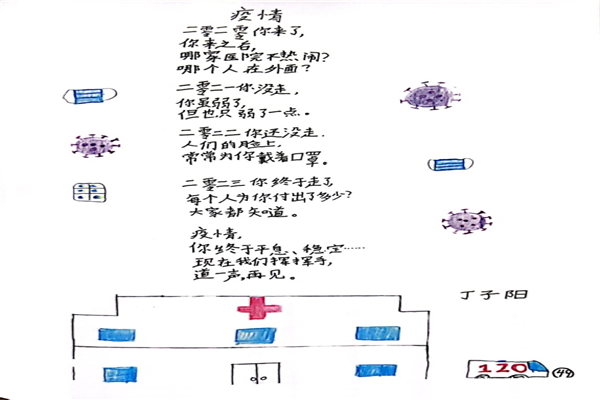 疫情
二零二零你来了，
你来之后，
哪家医院不热闹？
哪个人在外面？
二零二一你没走，
你虽弱了，
但也只弱了一点。
二零二二你还没走．
人们的脸上，
常常为你戴着口罩。
二零二三你终于走了，
每个人为你付出了多少？
大家都知道。
疫情，
你终于平息、稳定……
现在我们挥挥手，
道一声，再见。
丁子阳
120